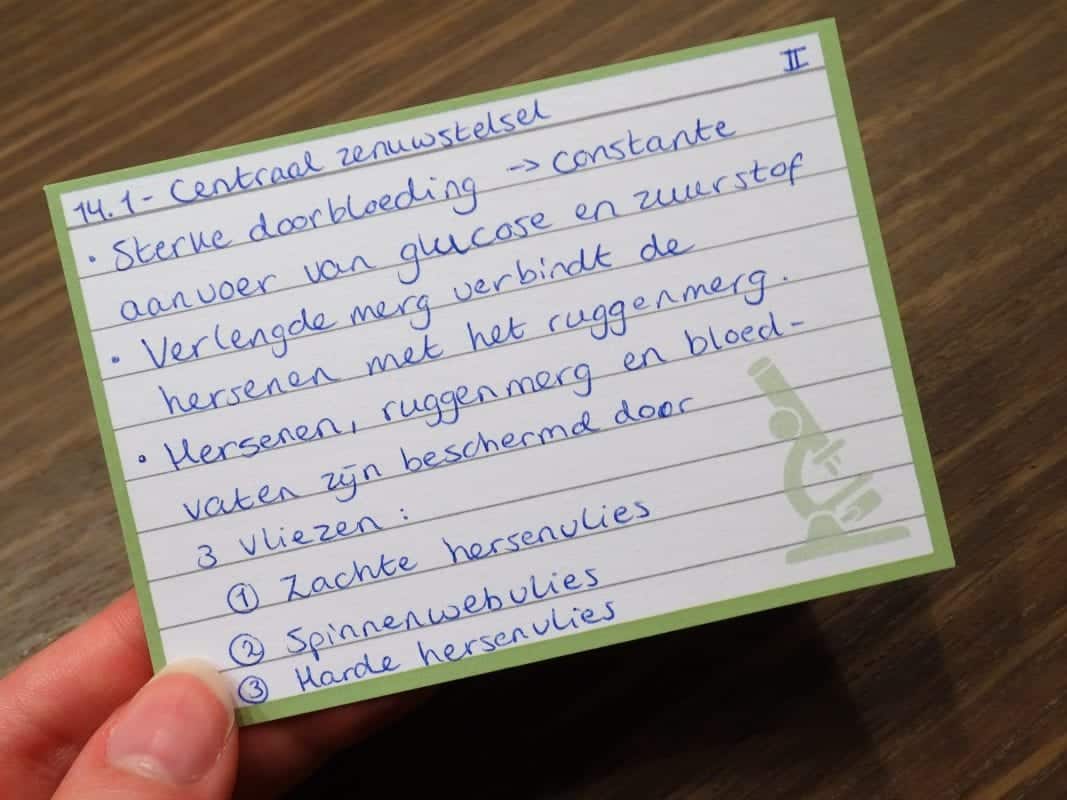 II
14.1 - Centraal zenuwstelsel
• Sterke doorbloeding -> constante
aanvoer van glucose en zuurstof
• Verlengde merg verbindt de
hersenen met het ruggenmerg.
• Hersenen, ruggenmerg en bloed-
vaten zijn beschermd door
3 vliezen:
① Zachte hersenvlies
② Spinnenwebvlies
③ Harde hersenvlies